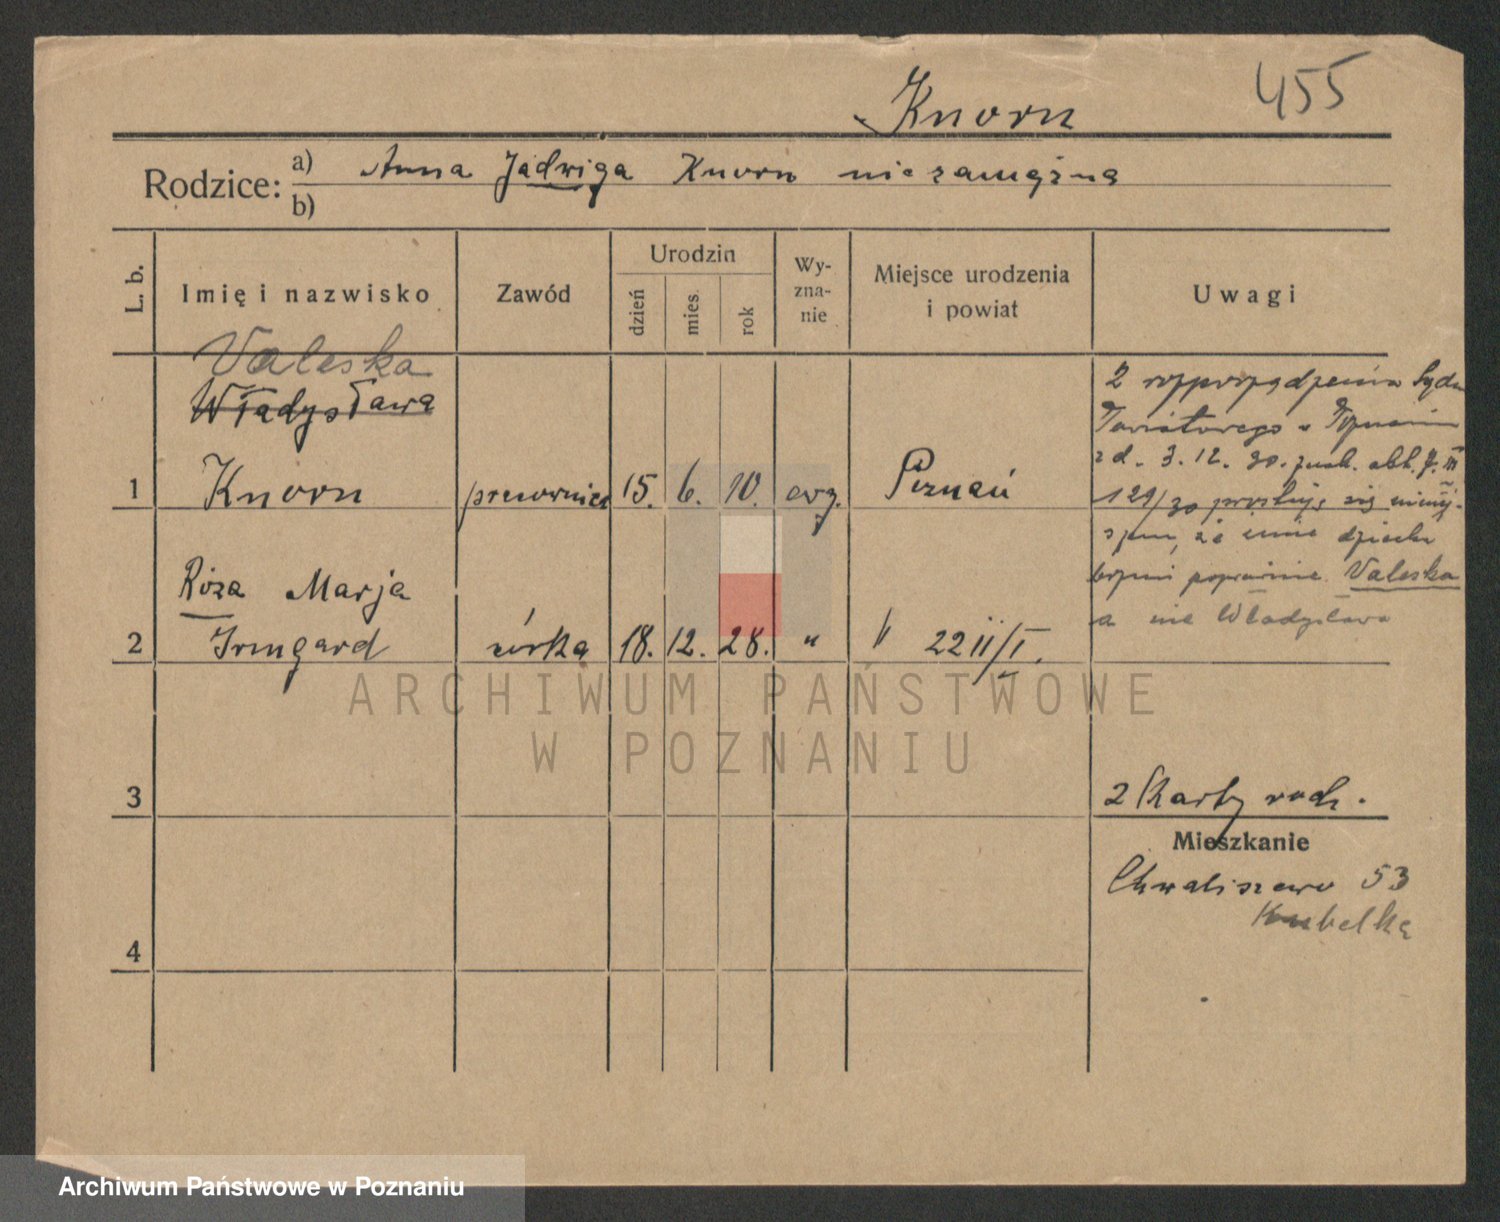 455
Knorn
Rodzice: a) Anna Jadwiga Knorn niezamężna
b)
L. b.
Imię i nazwisko
Zawód
Urodzin
dzień
mies.
rok
Wy-
zna-
nie
Miejsce urodzenia
i powiat
Uwagi
Valeska
Władysława
1 Knorn pracownica 15. 6. 10. ewg. Poznań
Róża Marja
2 Irmgard córka 18. 12. 28. " " 22 II/I.
Z rozporządzenia Sądu
Powiatowego w Poznaniu
z d. 3.12.30.
129/30 prostuje się niniej-
szem, że imię dziecka
brzmi poprawnie Valeska
a nie Władysława
3
2 Karty rodz.
Mieszkanie
Chwaliszewo 53
Kubelka
4
ARCHIWUM PAŃSTWOWE
W POZNANIU
Archiwum Państwowe w Poznaniu